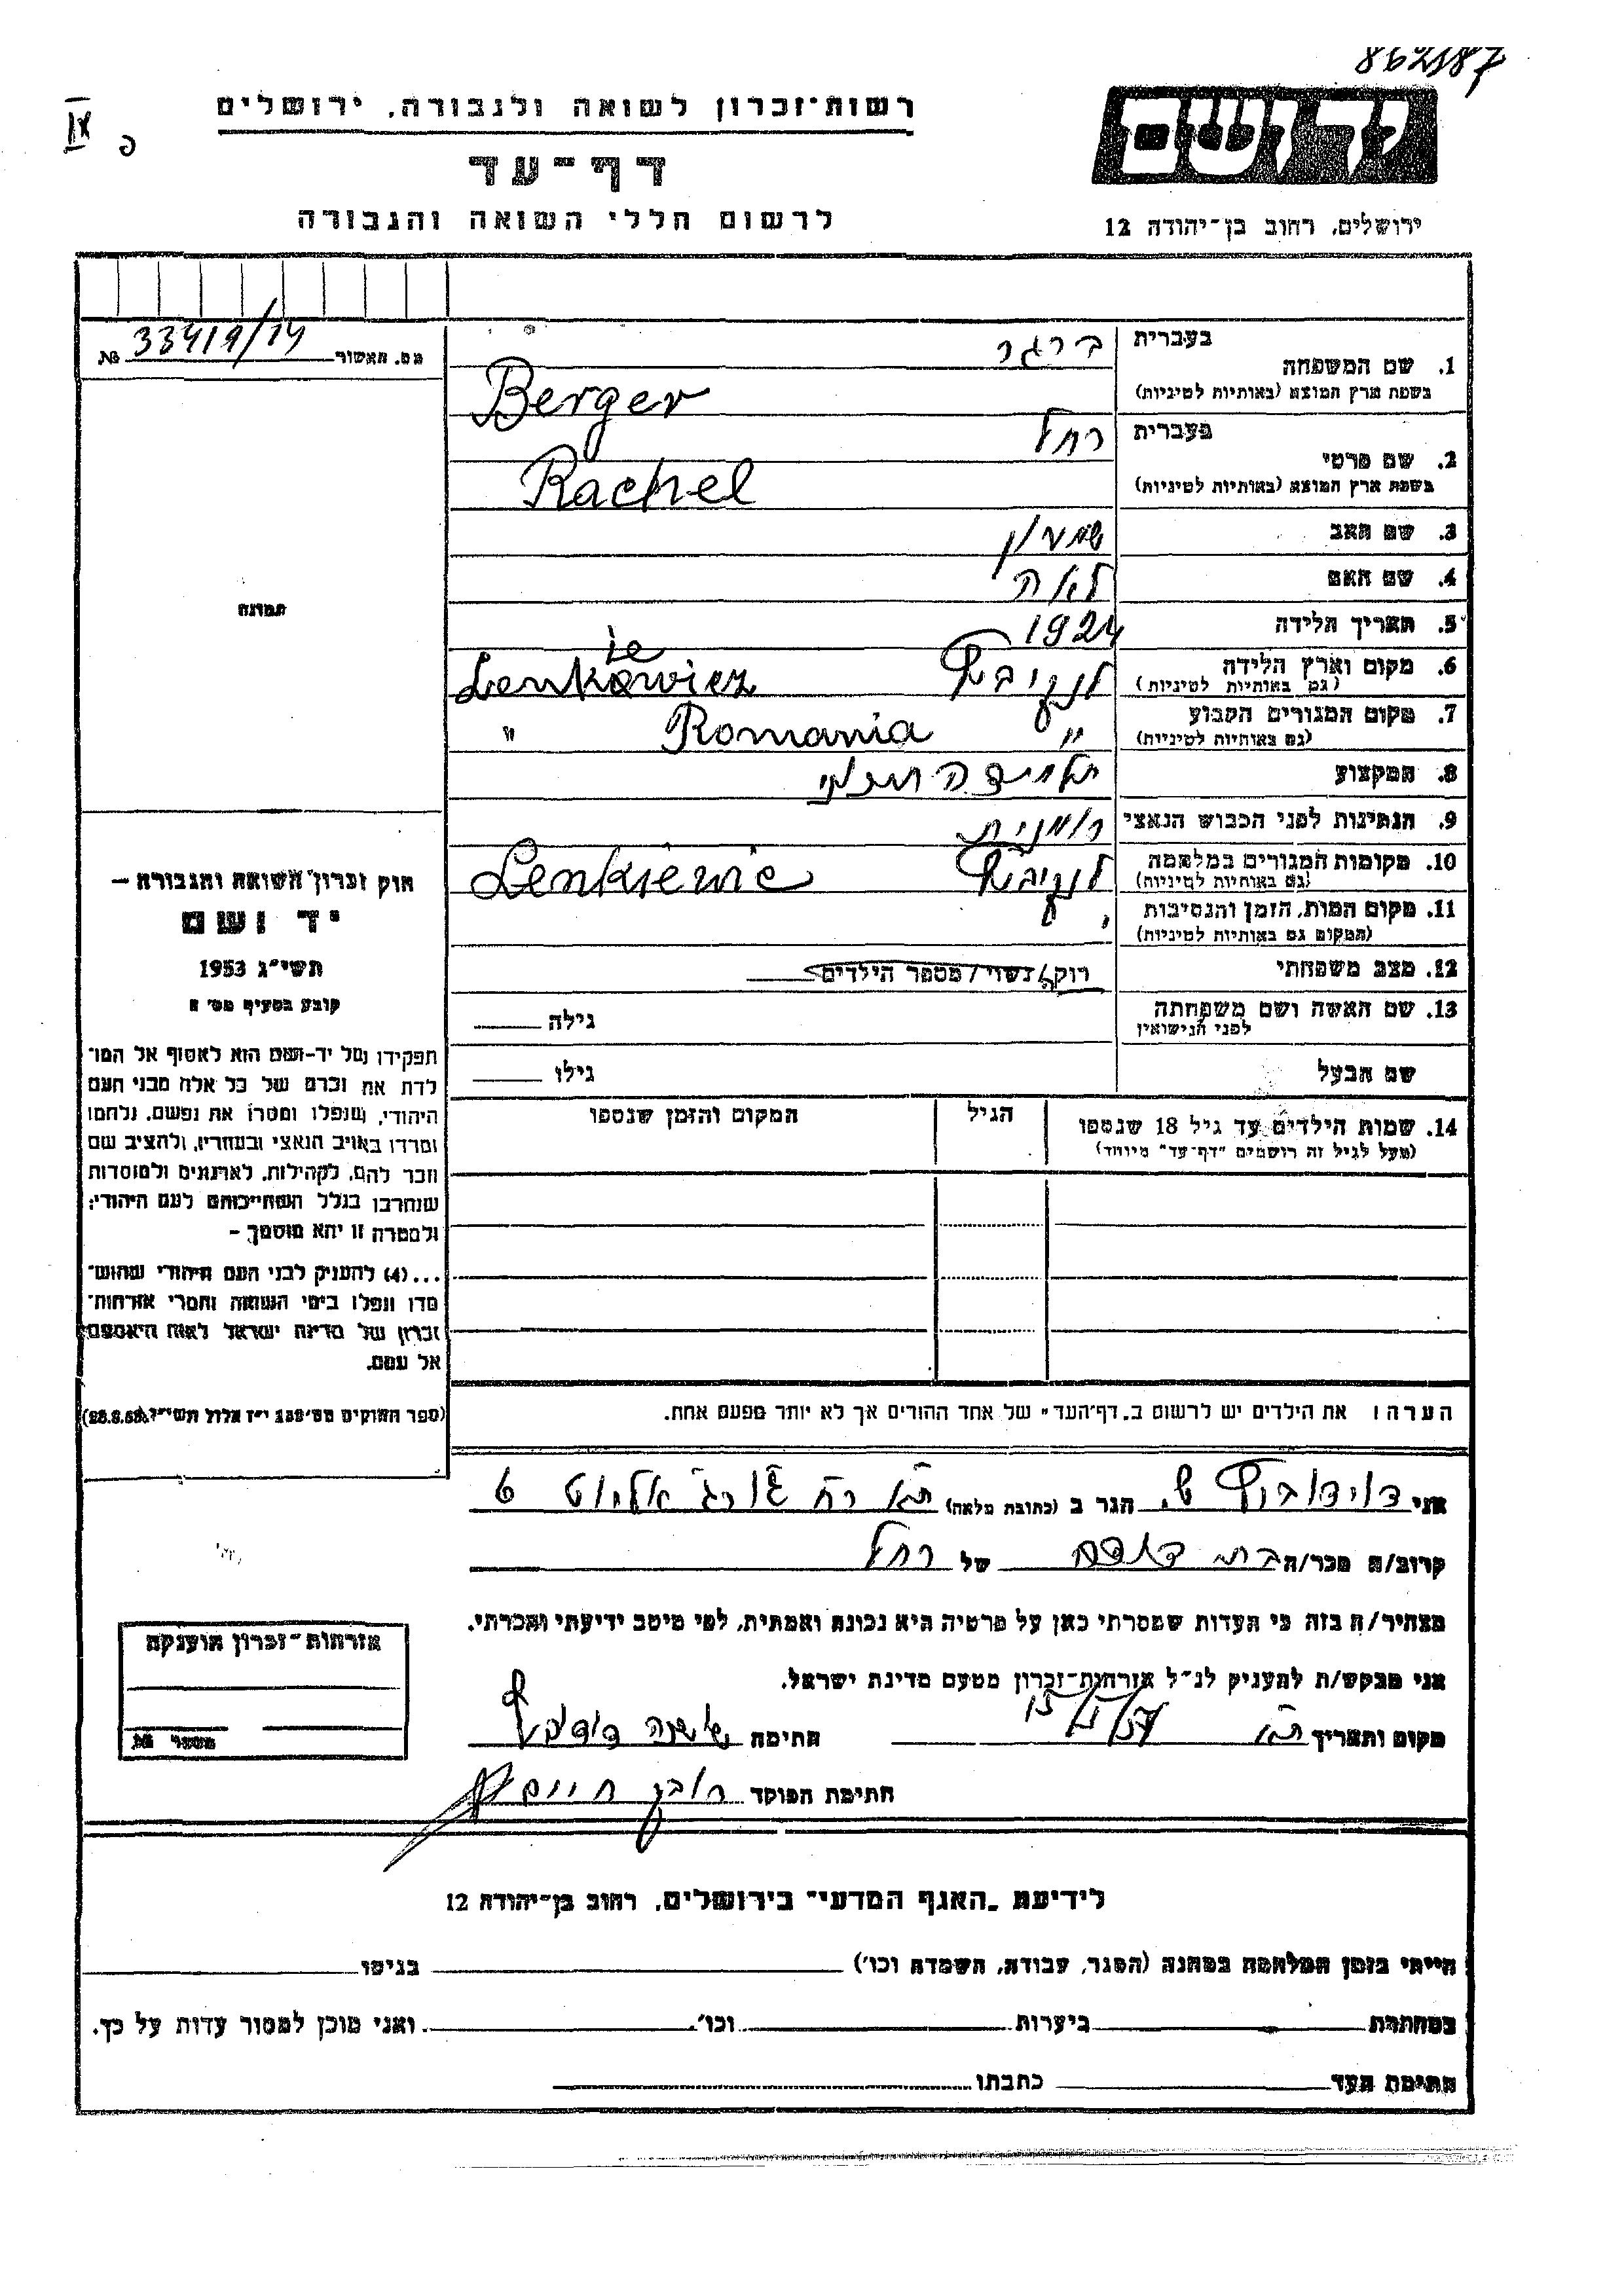 862187
רשות-זכרון לשואה ולגבורה, ירושלים
דף-עד
לרשום חללי השואה והגבורה
יד ושם
ירושלים, רחוב בן-יהודה 12
IX
מס. האשור 33419/14 №
תמונה
1. שם המשפחה
בעברית ברגר
בשפת ארץ המוצא (באותיות לטיניות) Berger
2. שם פרטי
בעברית רחל
בשפת ארץ המוצא (באותיות לטיניות) Rachel
3. שם האב שמעון
4. שם האם לאה
5. תאריך הלידה 1924
6. מקום וארץ הלידה
(גם באותיות לטיניות)
7. מקום המגורים הקבוע " Romania "
(גם באותיות לטיניות)
8. המקצוע
9. הנתינות לפני הכבוש הנאצי רומנית
10. מקומות המגורים במלחמה
(גם באותיות לטיניות)
11. מקום המות, הזמן והנסיבות
(המקום גם באותיות לטיניות)
12. מצב משפחתי רוק/ה/נשוי/מספר הילדים
13. שם האשה ושם משפחתה
לפני הנישואין
גילה
שם הבעל גילו
14. שמות הילדים עד גיל 18 שנספו הגיל המקום והזמן שנספו
(מעל לגיל זה רושמים "דף-עד" מיוחד)
חוק זכרון השואה והגבורה —
יד ושם
תשי"ג 1953
קובע בסעיף מס'
תפקידו של יד-ושם הוא לאסוף אל המו־
לדת את זכרם של כל אלה מבני העם
היהודי, שנפלו ומסרו את נפשם, נלחמו
ומרדו באויב הנאצי ובעוזריו, ולהציב שם
וזכר להם, לקהילות, לארגונים ולמוסדות
שנחרבו בגלל השתייכותם לעם היהודי;
ולמטרה זו יהא מוסמך —
...(4) להעניק לבני העם היהודי שהוש־
מדו ונפלו בימי השואה והמרי אזרחות־
זכרון של מדינת ישראל לאות היאספם
אל עמם.
(ספר החוקים מס' 132 י"ז אלול תשי"ג 28.8.53)
הערה: את הילדים יש לרשום ב"דף-העד" של אחד ההורים אך לא יותר מפעם אחת.
אני דוידוביץ ש. הגר ב (כתובת מלאה) ת"א רח' ג'ורג' אליוט 6
קרוב/ה מכר/ה בת דודה של רחל
מצהיר/ה בזה כי העדות שמסרתי כאן על פרטיה היא נכונה ואמתית, לפי מיטב ידיעתי והכרתי.
אני מבקש/ת להעניק לנ"ל אזרחות-זכרון מטעם מדינת ישראל.
מקום ותאריך ת"א חתימה שושנה דוידוביץ
חתימת הפוקד רובין חיים
אזרחות-זכרון הוענקה
מספר №
לידיעת "האגף המדעי" בירושלים, רחוב בן-יהודה 12
הייתי בזמן המלחמה במחנה (הסגר, עבודה, השמדה וכו') בגיטו
במחתרת ביערות וכו'. ואני מוכן למסור עדות על כך.
חתימת העד כתבתו